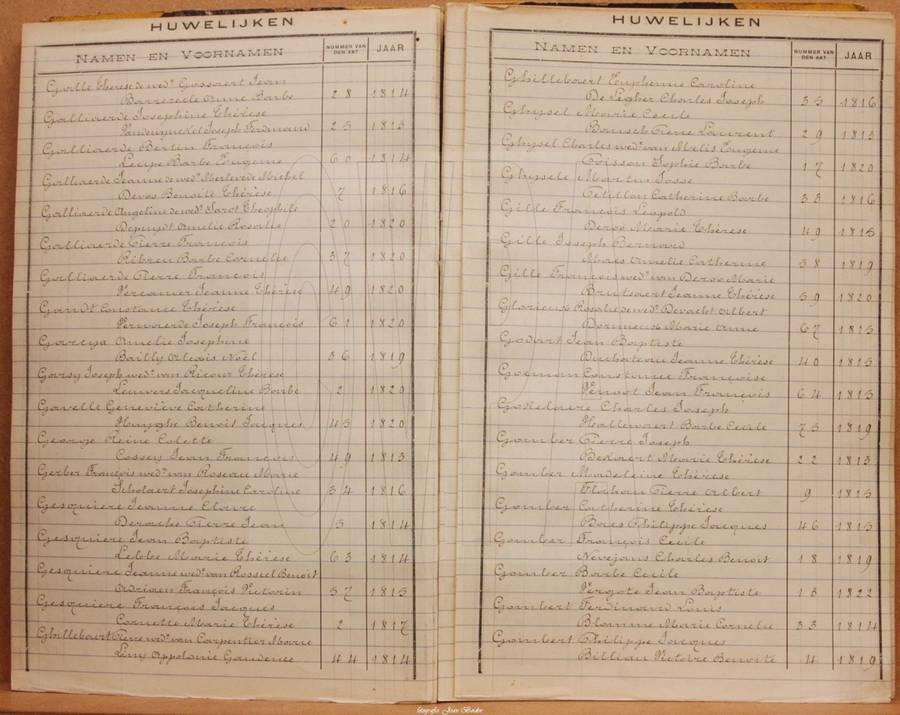 HUWELIJKEN
NAMEN EN VOORNAMEN NUMMER VAN DEN AKT JAAR
Galle Thérèse de wedᵉ Gossaert Jean
Barbe 28 1814
Galliaerde Josephine Thérèse
Joseph Ferdinand 25 1813
Galliaerde Bertin François
Leupe Barbe Eugenie 60 1814
Galliaerde Jeanne de wedᵉ
Devos Benoite Thérèse 7 1816
Galliaerde Angeline de wedᵉ Théophile
Depuydt Amelie Rosalie 20 1820
Galliaerde Pierre François
Barbe Cornelie 37 1820
Galliaerde Pierre François
Vercamer Jeanne Thérèse 49 1820
Gandt Constance Thérèse
Joseph François 61 1820
Garcya Amelie Josephine
Bailly Alexis Noël 36 1819
Joseph wedʳ van Ricour Thérèse
Jacqueline Barbe 2 1820
Garvelle Geneviève Catherine
Huyghe Benoit Jacques 45 1820
George Reine Colette
Cossey Jean François 49 1813
Gerber François wedʳ van Roseau Marie
Josephine Caroline 34 1816
Gesquiere Jeanne Claire
Pierre Jean 5 1814
Gesquiere Jean Baptiste
Lebbe Marie Thérèse 63 1814
Gesquiere Jeanne wedᵉ van Rosseel Benoit
Adriaen François Victorin 57 1813
Gesquiere François Jacques
Cornette Marie Thérèse 2 1817
wedʳ van Carpentier Marie
Appolonie Gaudence 44 1814
HUWELIJKEN
NAMEN EN VOORNAMEN NUMMER VAN DEN AKT JAAR
Ghillebaert Euphemie Caroline
Charles Joseph 35 1816
Ghysel Marie Cecile
Pierre Laurent 29 1813
Ghysel Charles wedʳ van Melis Eugenie
Coisson Sophie Barbe 17 1820
Martin Josse
Petillon Catherine Barbe 33 1816
Gille François Leopold
Deroo Marie Thérèse 49 1815
Gille Joseph Bernard
Maes Amelie Catherine 38 1819
Gille François wedʳ van Deroo Marie
Brutsaert Jeanne Thérèse 59 1820
Glorieux Rosalie de wedᵉ Albert
Dormieux Marie Anne 67 1813
Godart Jean Baptiste
Duchateau Jeanne Thérèse 40 1813
Goeman Constance Françoise
Jean François 64 1813
Charles Joseph
Barbe Cecile 75 1819
Gomber Pierre Joseph
Bekaert Marie Thérèse 22 1813
Gomber Madeleine Thérèse
Pierre Albert 9 1813
Gomber Catherine Thérèse
Baes Philippe Jacques 46 1813
Gomber François Cecile
Nevejans Charles Benoit 18 1819
Gomber Barbe Cecile
Vergote Jean Baptiste 13 1822
Gombert Ferdinand Louis
Blomme Marie Cornelie 33 1814
Gombert Philippe Jacques
Billiau Victoire Benoite 4 1819